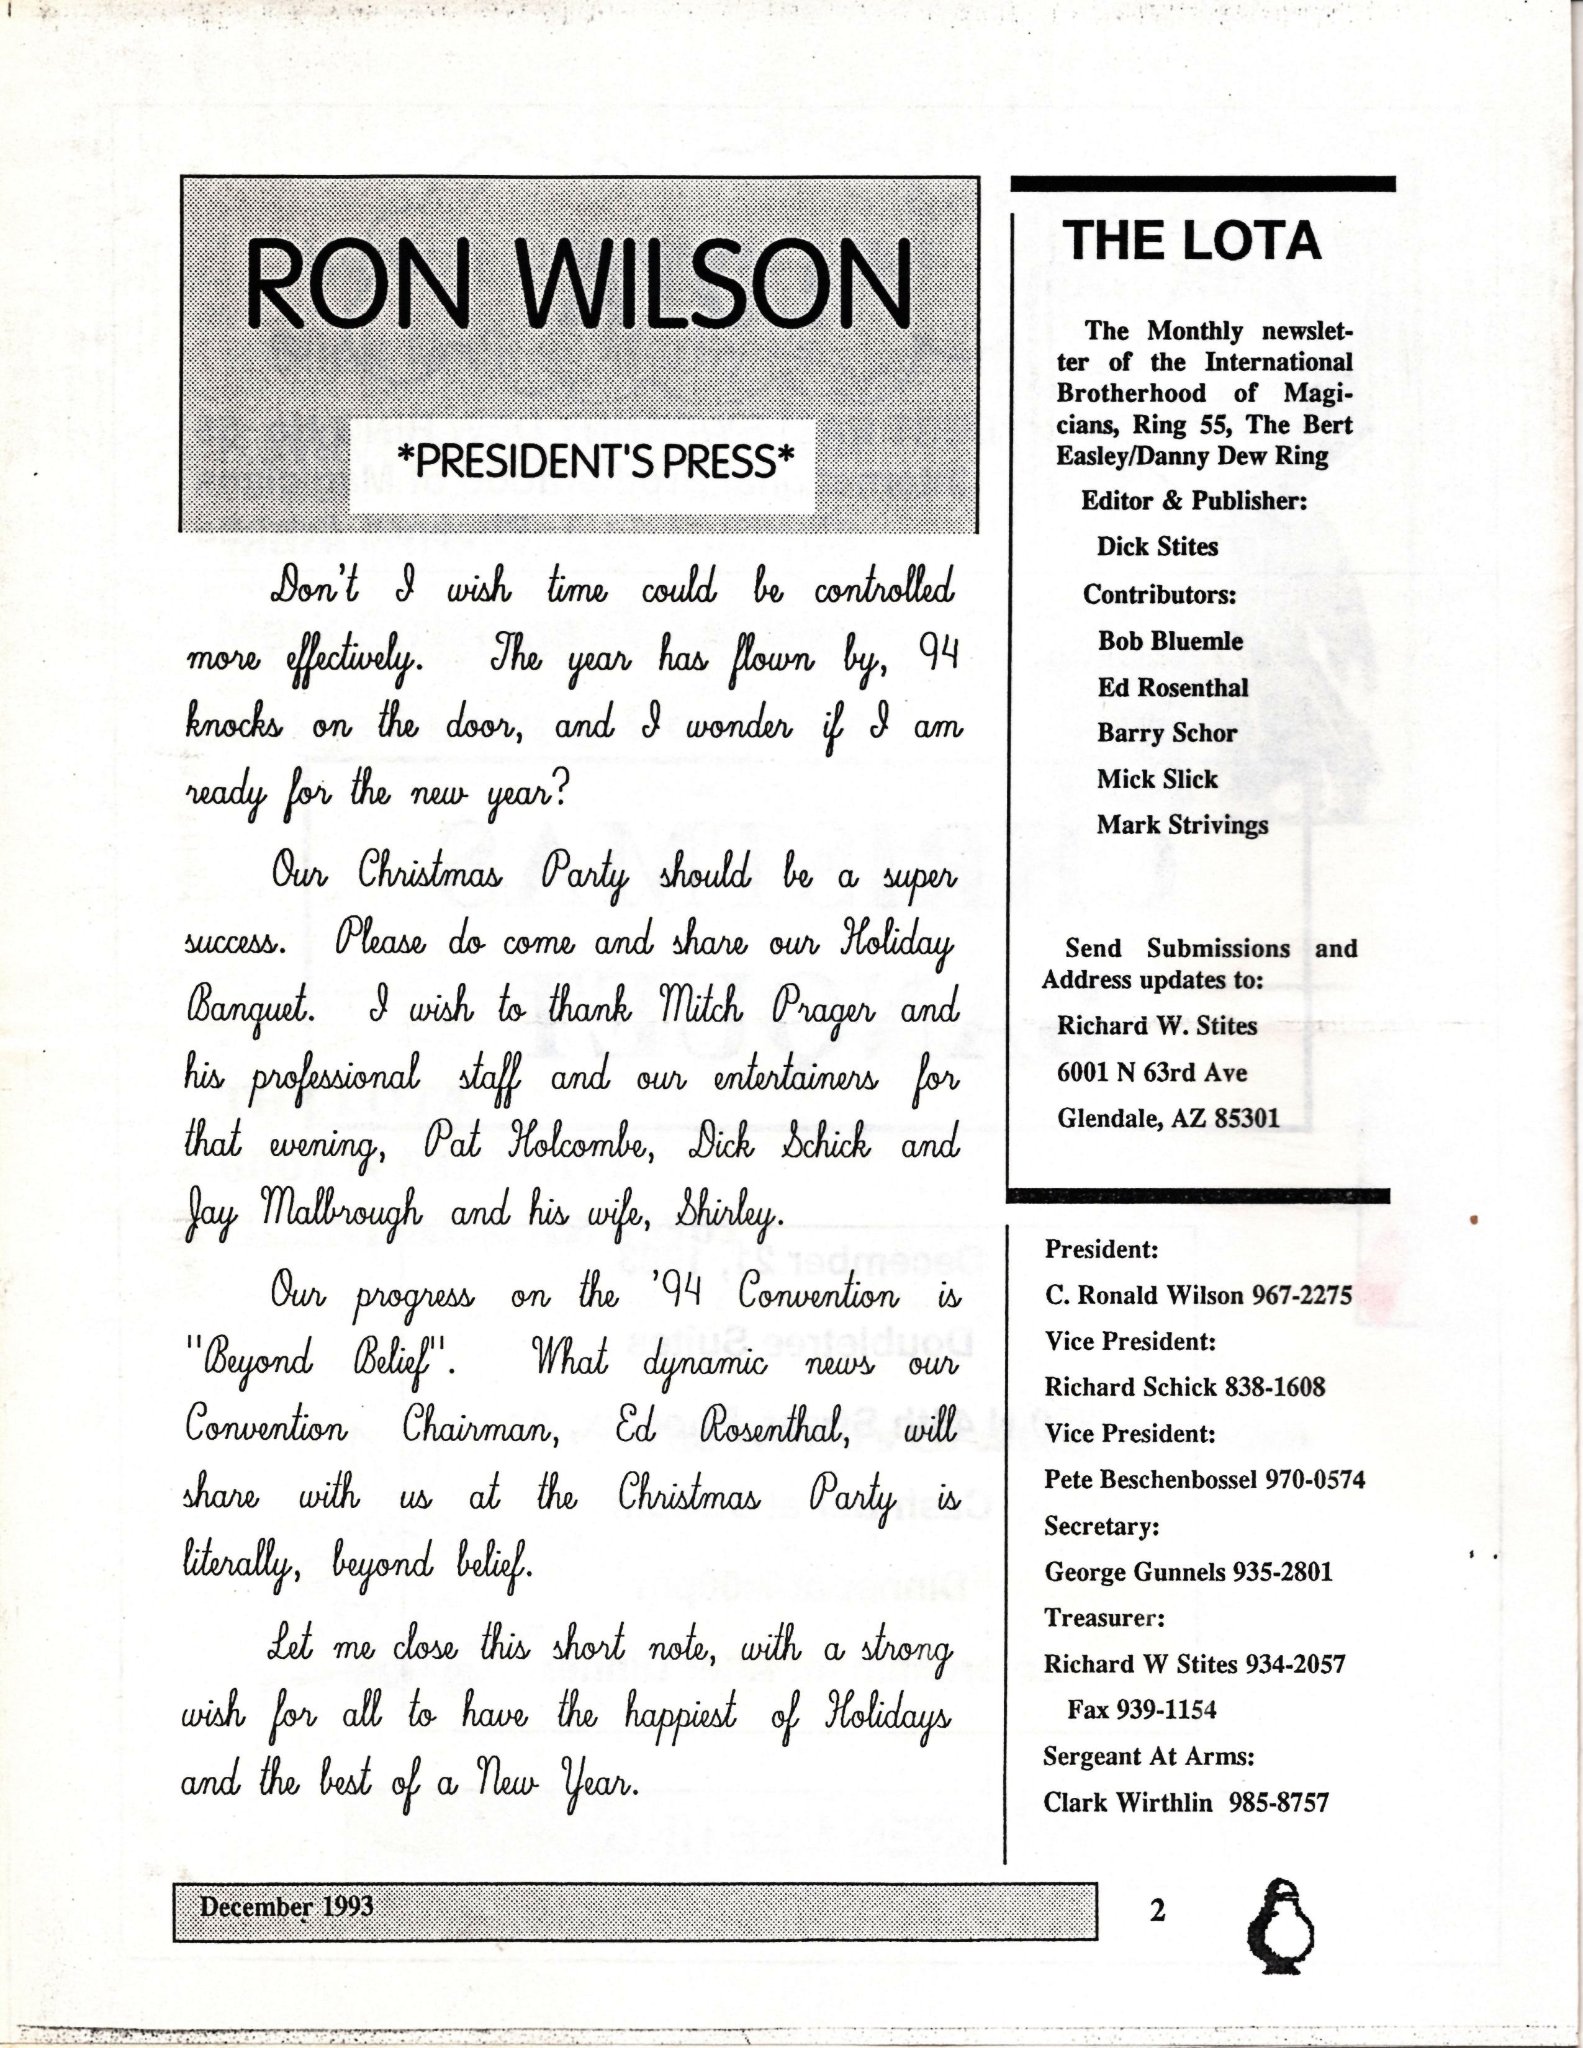 RON WILSON
*PRESIDENT'S PRESS*
Don't I wish time could be controlled
more effectively. The year has flown by, 94
knocks on the door, and I wonder if I am
ready for the new year?
Our Christmas Party should be a super
success. Please do come and share our Holiday
Banquet. I wish to thank Mitch Prager and
his professional staff and our entertainers for
that evening, Pat Holcombe, Dick Schick and
Jay Malbrough and his wife, Shirley.
Our progress on the '94 Convention is
"Beyond Belief". What dynamic news our
Convention Chairman, Ed Rosenthal, will
share with us at the Christmas Party is
literally, beyond belief.
Let me close this short note, with a strong
wish for all to have the happiest of Holidays
and the best of a New Year.
THE LOTA
The Monthly newslet-
ter of the International
Brotherhood of Magi-
cians, Ring 55, The Bert
Easley/Danny Dew Ring
Editor & Publisher:
Dick Stites
Contributors:
Bob Bluemle
Ed Rosenthal
Barry Schor
Mick Slick
Mark Strivings
Send Submissions and
Address updates to:
Richard W. Stites
6001 N 63rd Ave
Glendale, AZ 85301
President:
C. Ronald Wilson 967-2275
Vice President:
Richard Schick 838-1608
Vice President:
Pete Beschenbossel 970-0574
Secretary:
George Gunnels 935-2801
Treasurer:
Richard W Stites 934-2057
Fax 939-1154
Sergeant At Arms:
Clark Wirthlin 985-8757
December 1993
2